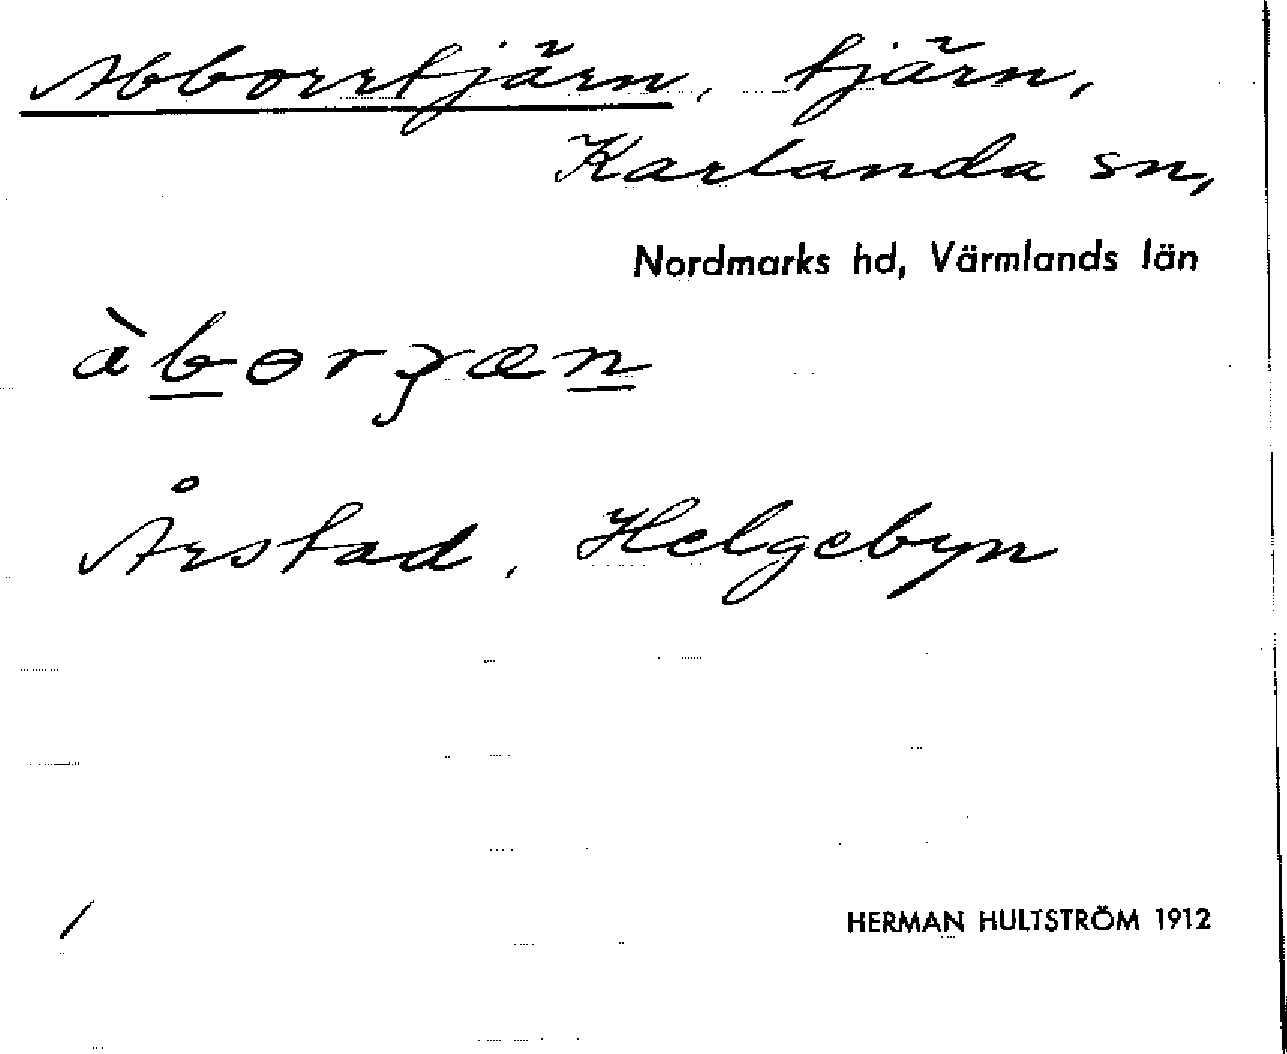 Abborrtjärn, tjärn,
Karlanda sn,
Nordmarks hd, Värmlands län
Årstad, Helgebyn
/
HERMAN HULTSTRÖM 1912